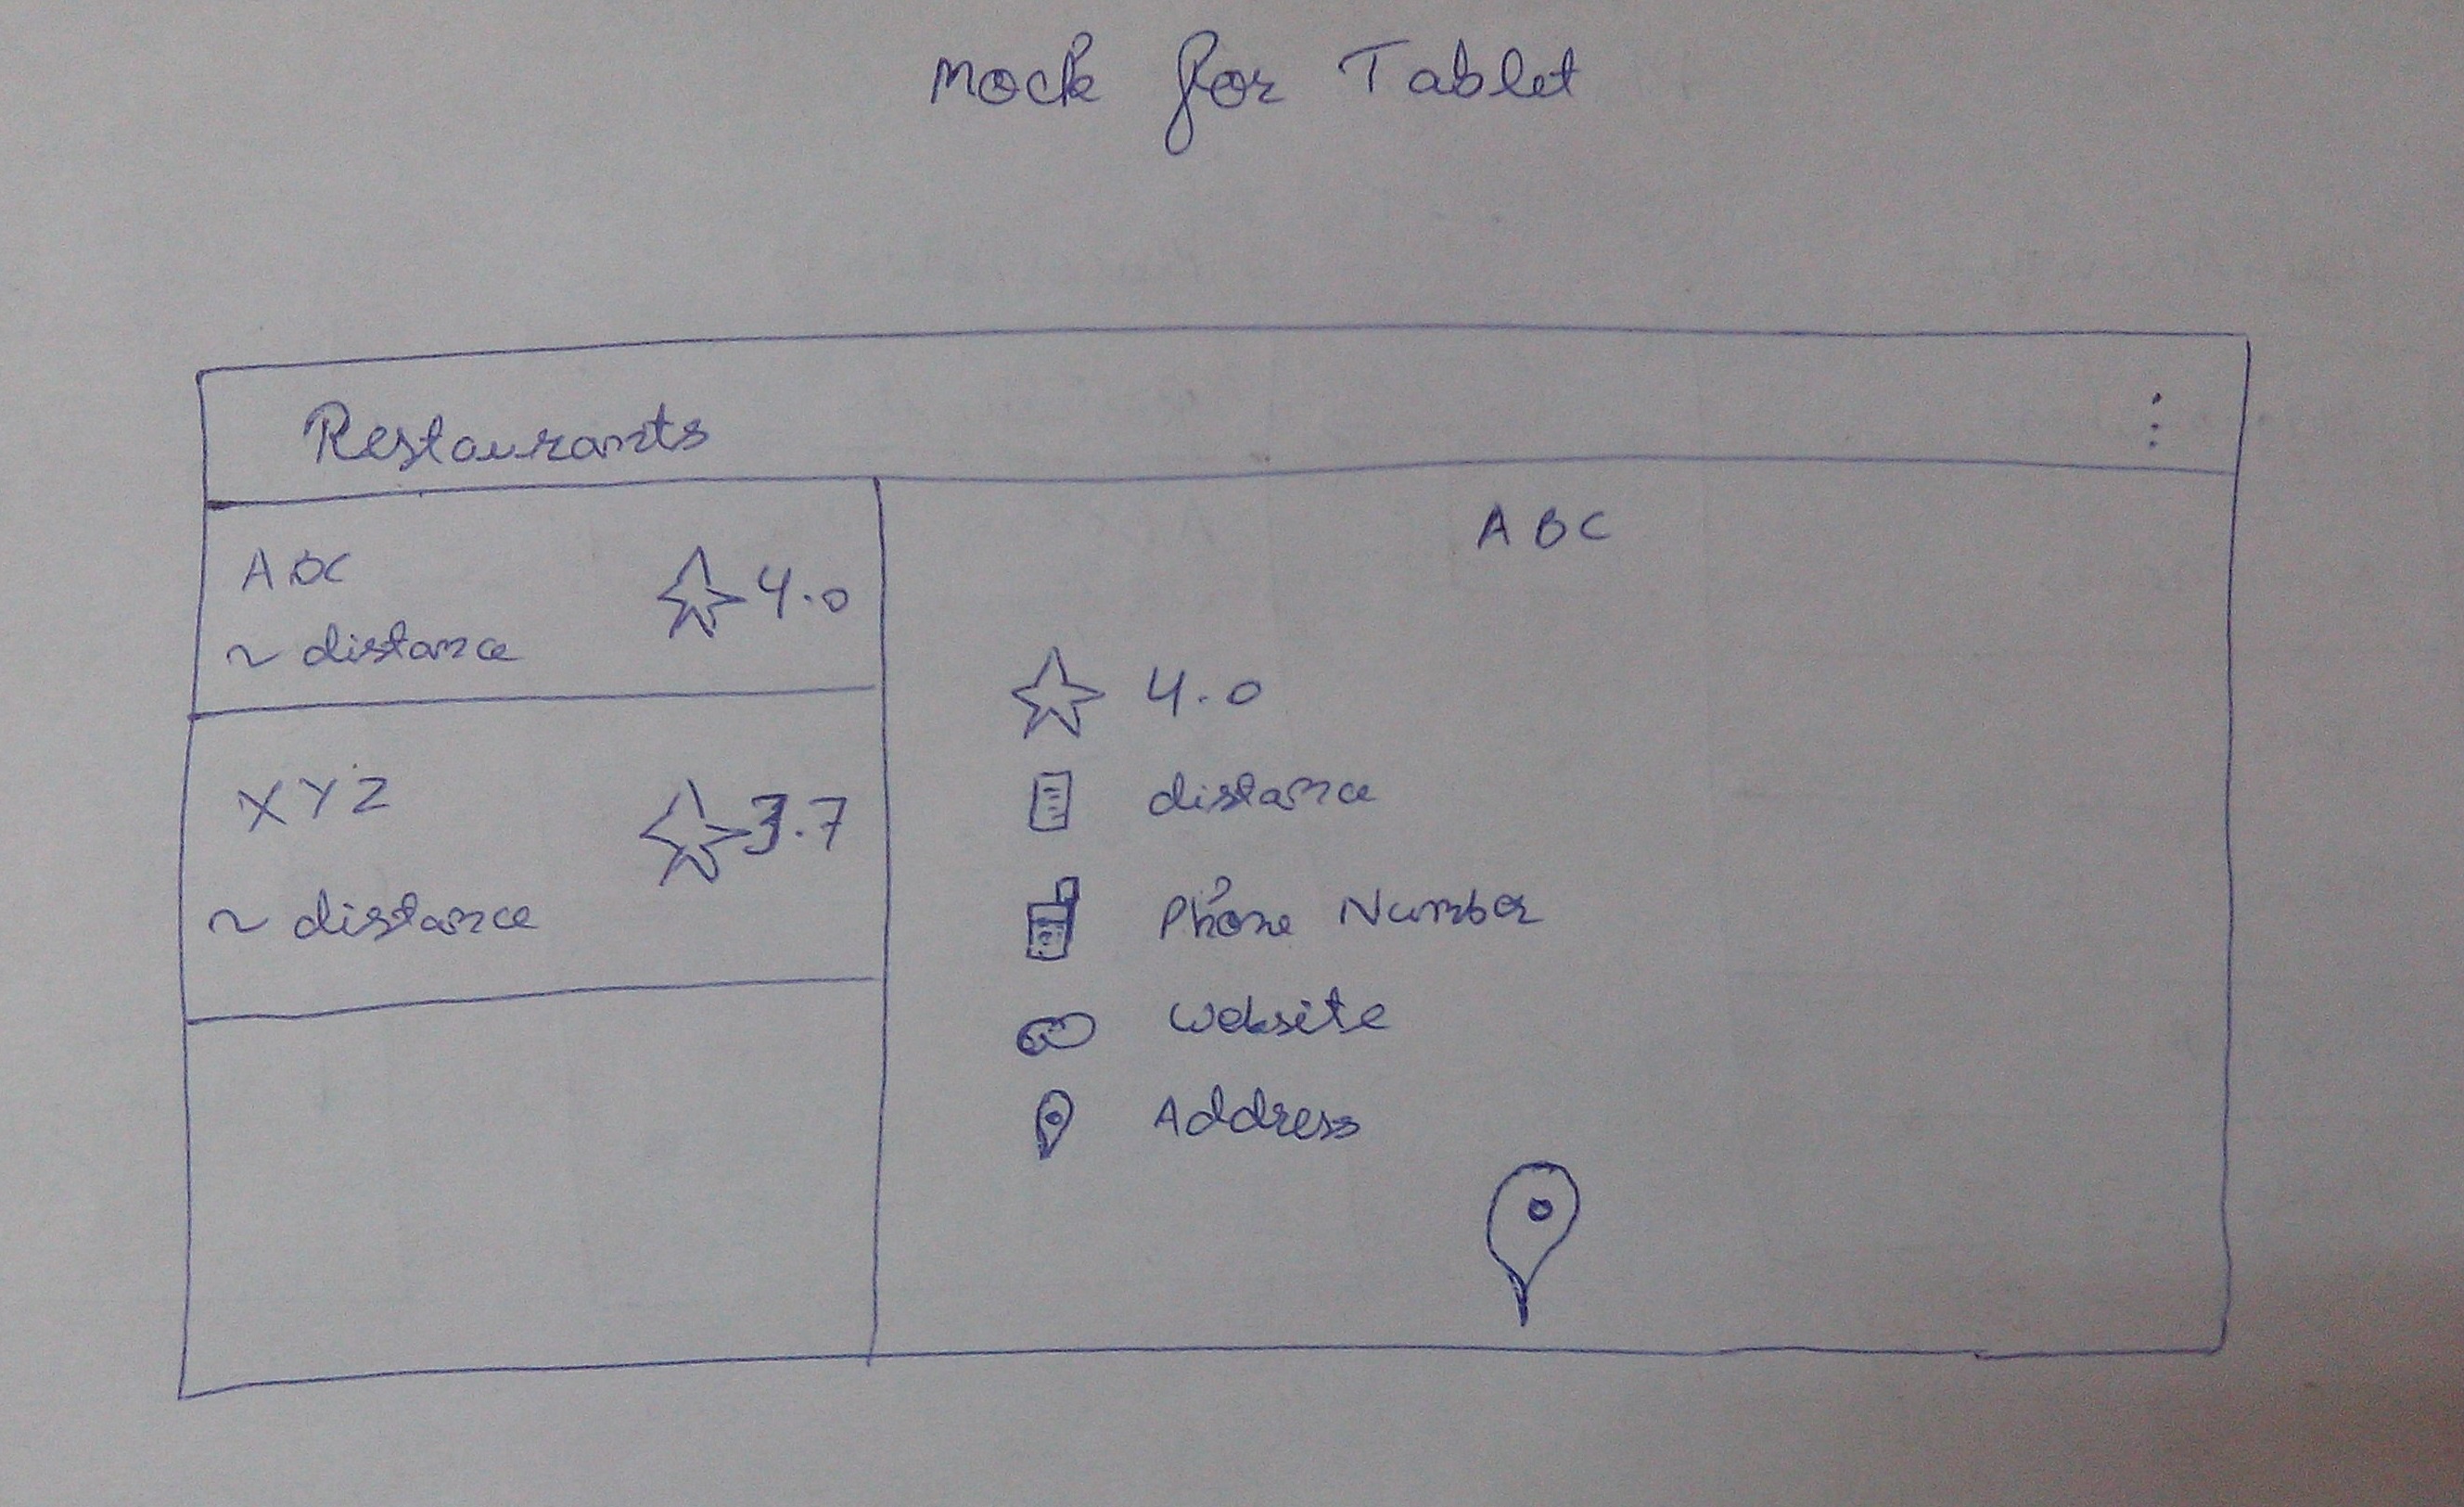 Mock for Tablet
Restaurants
ABC
4.0
~ distance
XYZ
3.7
~ distance
ABC
4.0
distance
Phone Number
Website
Address